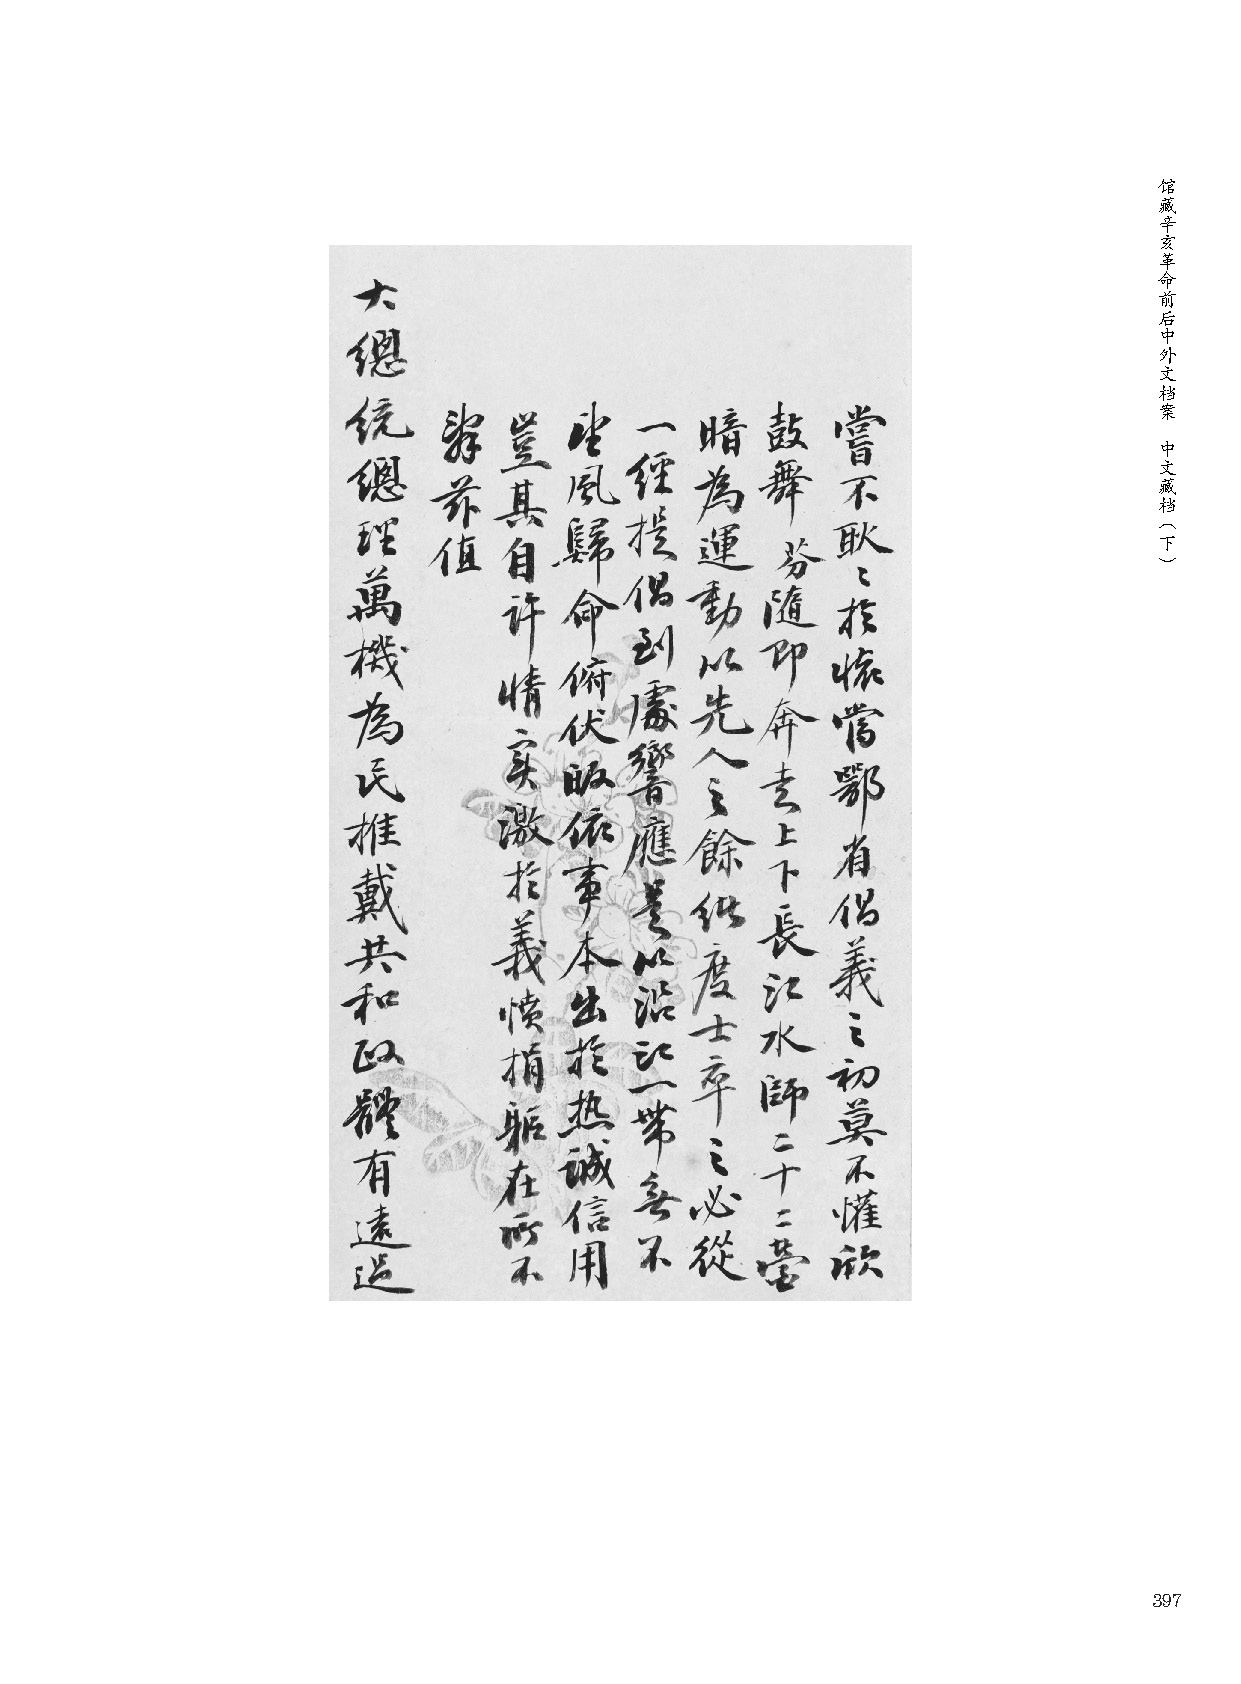 馆藏辛亥革命前后中外文档案 中文藏档（下）
嘗不耿〻於懷當鄂省倡義之初莫不懽欣
鼓舞芬隨即奔走上下長江水師二十二營
暗為運動以先人之餘度士卒之必從
一經提倡到處響應是以沿江一帶無不
望風歸命俯伏皈依事本出於热誠信用
豈其自許情実激於義憤捐軀在所不
辤茲值
大總統總理萬機為民推戴共和政體有遠過
397